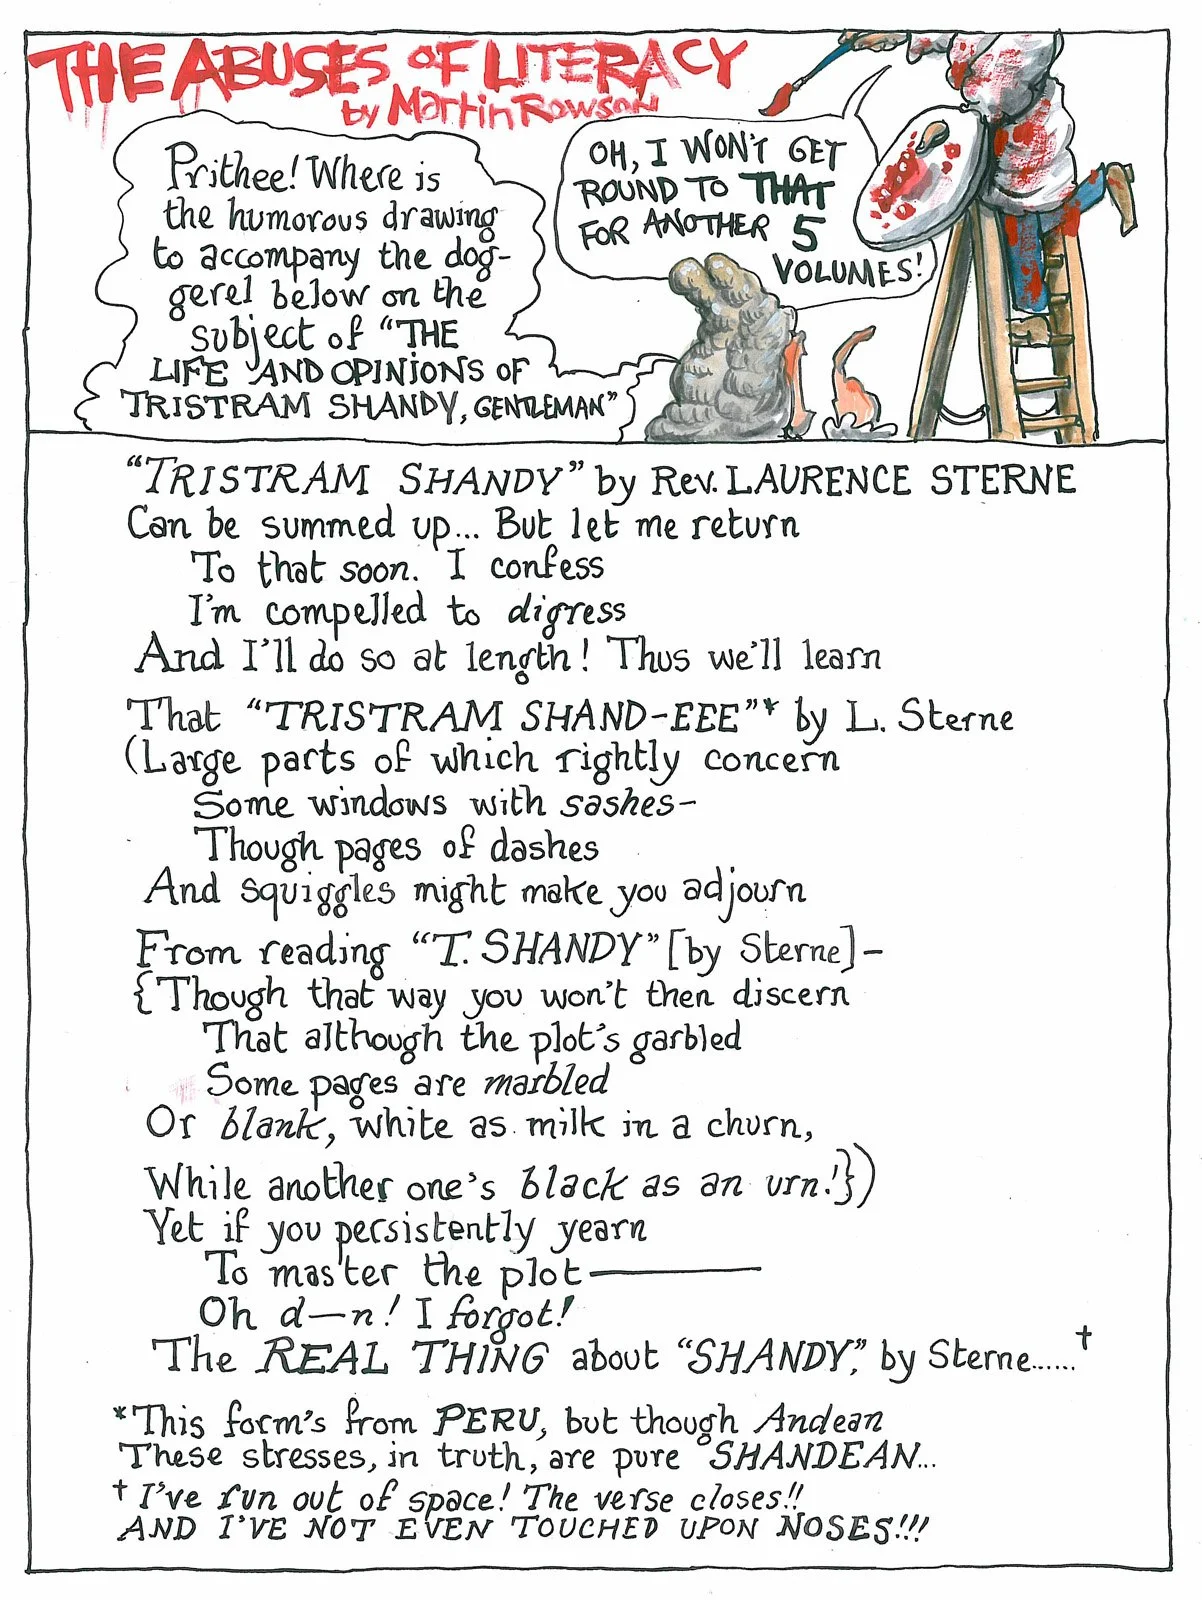 THE ABUSES OF LITERACY
by Martin Rowson
Prithee! Where is
the humorous drawing
to accompany the dog-
gerel below on the
subject of "THE
LIFE AND OPINIONS OF
TRISTRAM SHANDY, GENTLEMAN"
OH, I WON'T GET
ROUND TO THAT
FOR ANOTHER 5
VOLUMES!
"TRISTRAM SHANDY" by Rev. LAURENCE STERNE
Can be summed up... But let me return
To that soon. I confess
I'm compelled to digress
And I'll do so at length! Thus we'll learn
That "TRISTRAM SHAND-EEE"* by L. Sterne
(Large parts of which rightly concern
Some windows with sashes-
Though pages of dashes
And squiggles might make you adjourn
From reading "T. SHANDY" [by Sterne]-
{Though that way you won't then discern
That although the plot's garbled
Some pages are marbled
Or blank, white as milk in a churn,
While another one's black as an urn!})
Yet if you persistently yearn
To master the plot————
Oh d—n! I forgot!
The REAL THING about "SHANDY", by Sterne......†
*This form's from PERU, but though Andean
These stresses, in truth, are pure SHANDEAN...
† I've run out of space! The verse closes!!
AND I'VE NOT EVEN TOUCHED UPON NOSES!!!